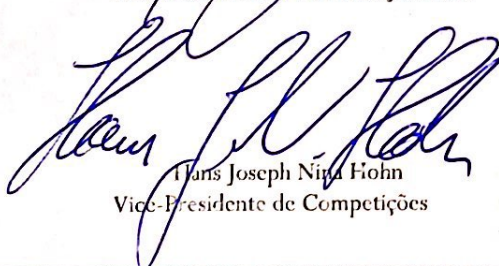 Hans Joseph Nina Hohn
Vice-Presidente de Competições